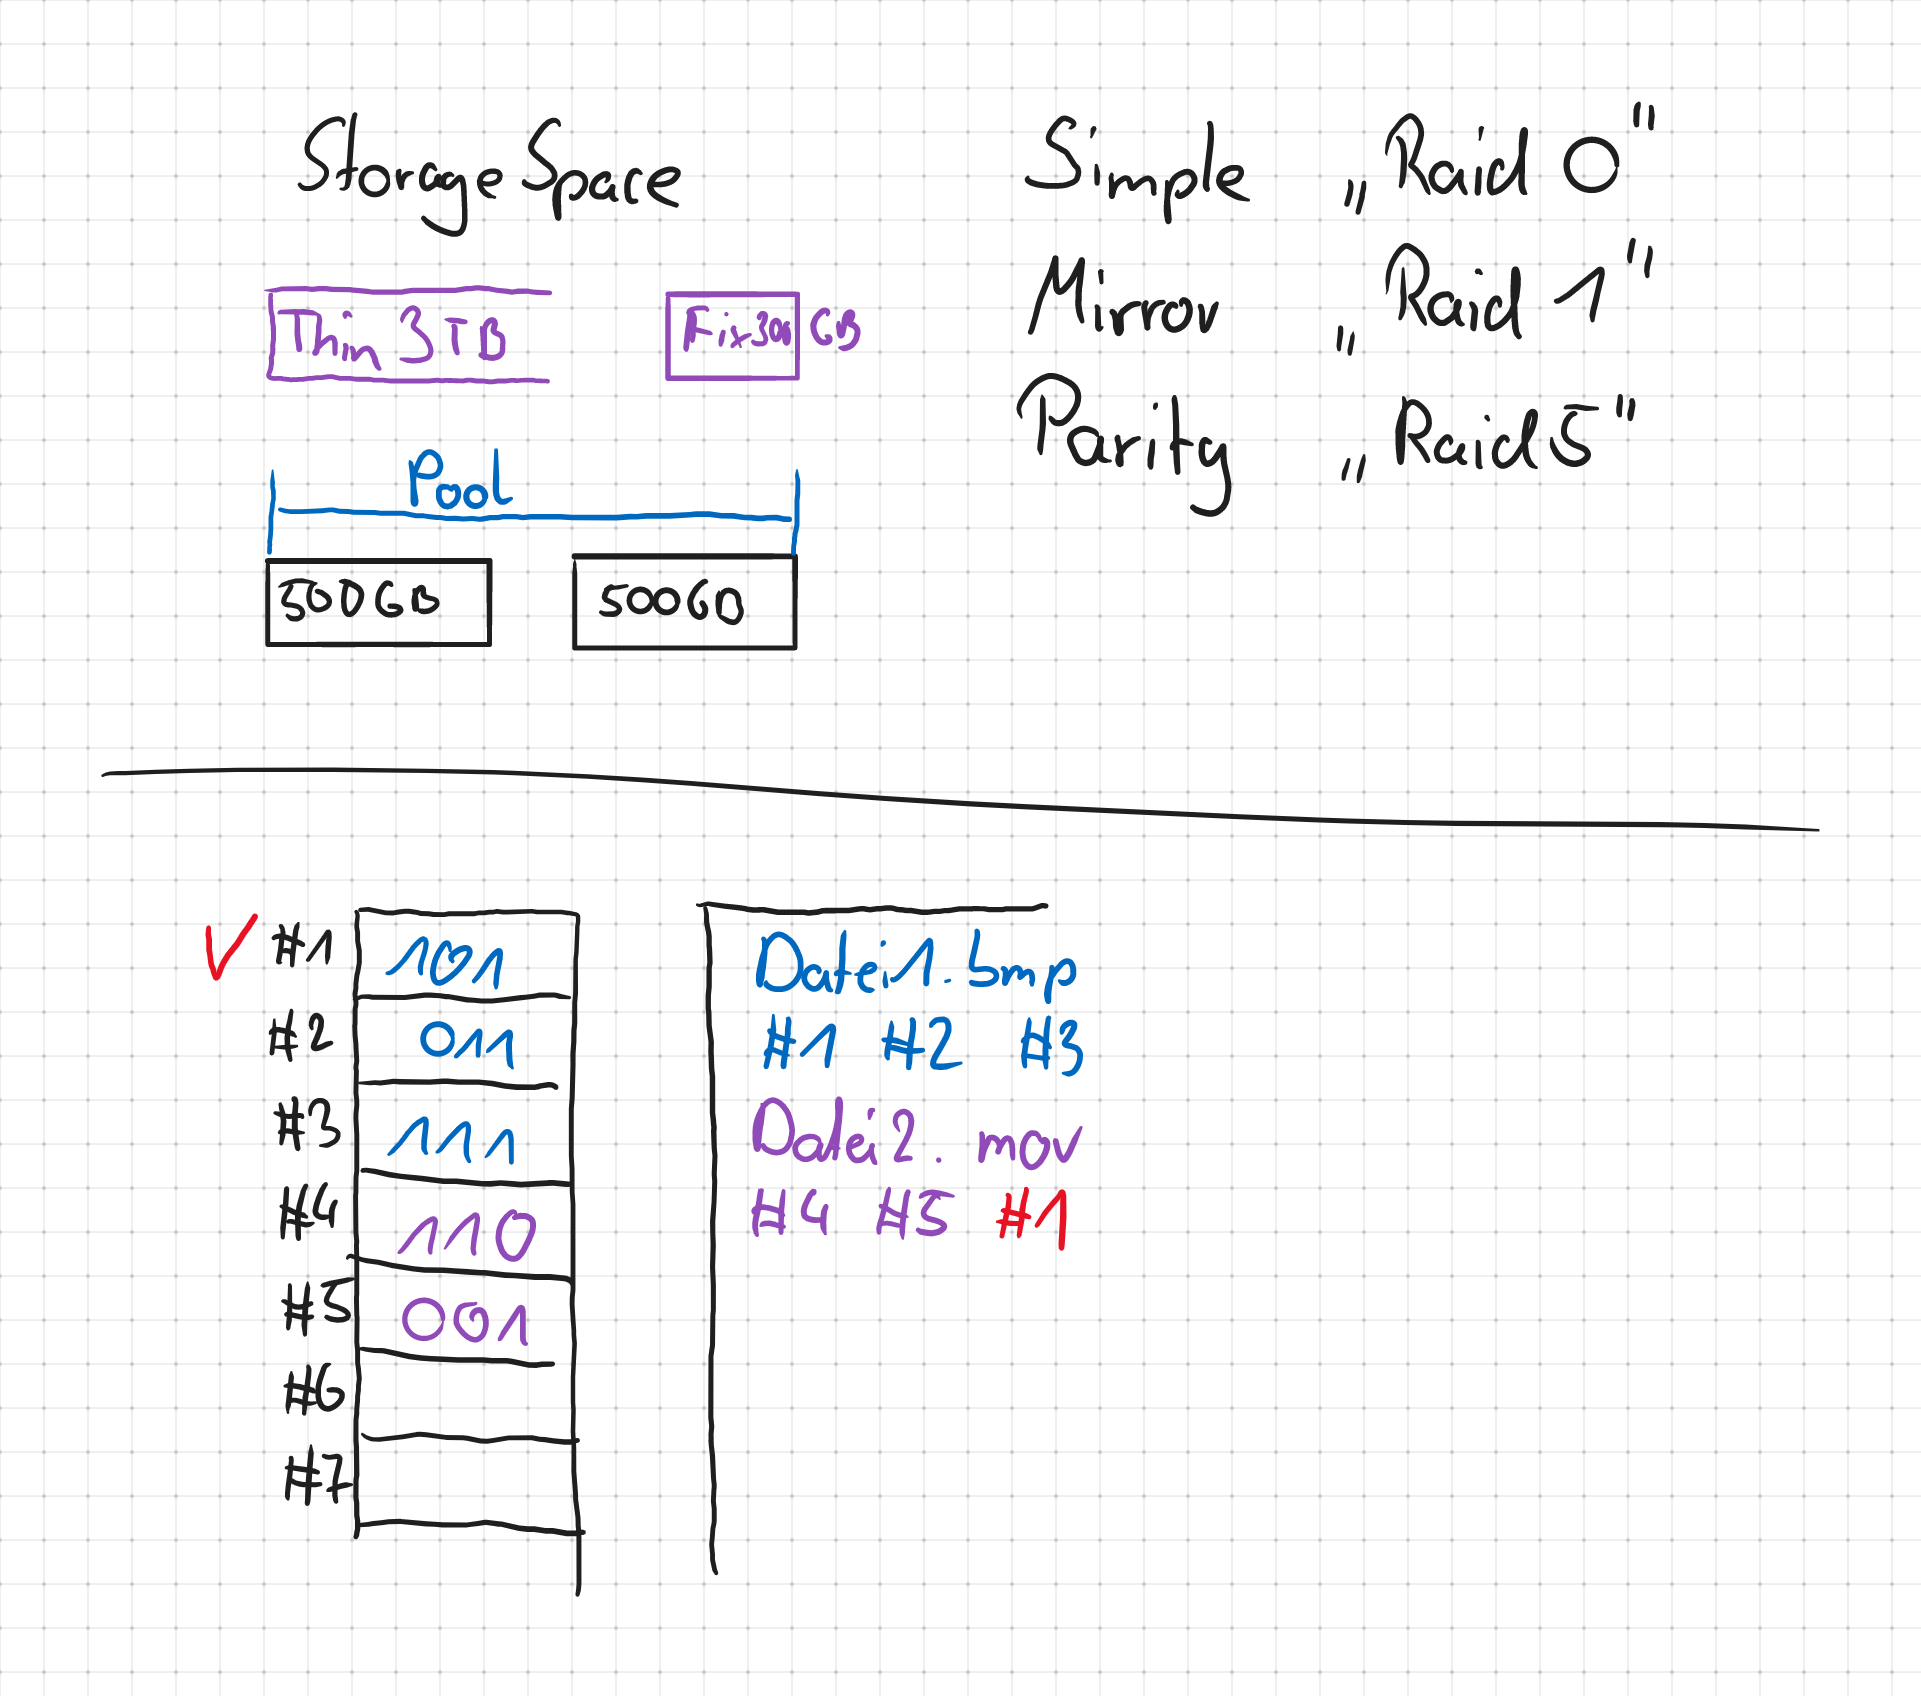 Storage Space
Thin 3TB
Fix 300 GB
Pool
500GB
500GB
Simple „Raid 0"
Mirror „Raid 1"
Parity „Raid 5"
#1 101
#2 011
#3 111
#4 110
#5 001
#6
#7
Datei1.bmp
#1 #2 #3
Datei2.mov
#4 #5 #1